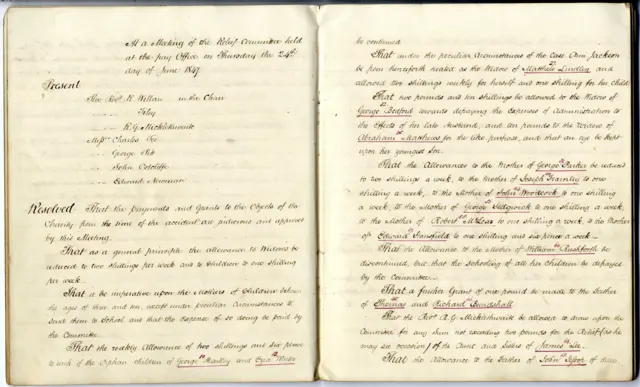 At a Meeting of the Relief Committee held
at the pay Office on Thursday the 24th
day of June 1847.
Present
The Revd R. Willan in the Chair
" " Filey
" " R. G. Micklethwait
Messrs Charles
George
John
Edward Newman
Resolved That the payments and Grants to the Objects of the
Charity from the time of the accident are judicious and approved
by this Meeting.
That as a general principle the allowance to Widows be
reduced to two shillings per week and to Children to one shilling
per week
That it be imperative upon the Mothers of Children between
the ages of three and ten, except under peculiar Circumstances to
send them to School and that the expense of so doing be paid by
the Committee
That the weekly Allowance of two shillings and six pence
to each of the Orphan children of George and
be continued
That under the peculiar Circumstances of the Case Ann Jackson
be from henceforth treated as the Widow of Matthew Lindley, and
allowed two shillings weekly for herself and one shilling for her Child
That two pounds and ten shillings be allowed to the Widow of
George Bedford towards defraying the expenses of Administration to
the Effects of her late Husband, and ten pounds to the Widow of
Abraham Matthews for the like purpose, and that an eye be kept
upon her youngest Son.
That the Allowances to the Mother of George Parker be reduced
to two shillings a week, to the Mother of Joseph to one
shilling a week, to the Mother of John Woodcock to one shilling
a week, to the Mother of George Sedgwick to one shilling a week,
to the Mother of Robert to one shilling a week, to the Mother
of Edward Stansfield to one shilling and six pence a week
That the Allowance to the Mother of William Rushforth be
discontinued, but that the schooling of all her children be defrayed
by the Committee
That a further Grant of one pound be made to the Father
of Thomas and Richard
That the Revd R. G. Micklethwait be allowed to draw upon the
Committee for any sum not exceeding two pounds for the Relief (as he
may see occasion) of the Aunt and Sisters of James Lee.
That the Allowance to the Father of John of